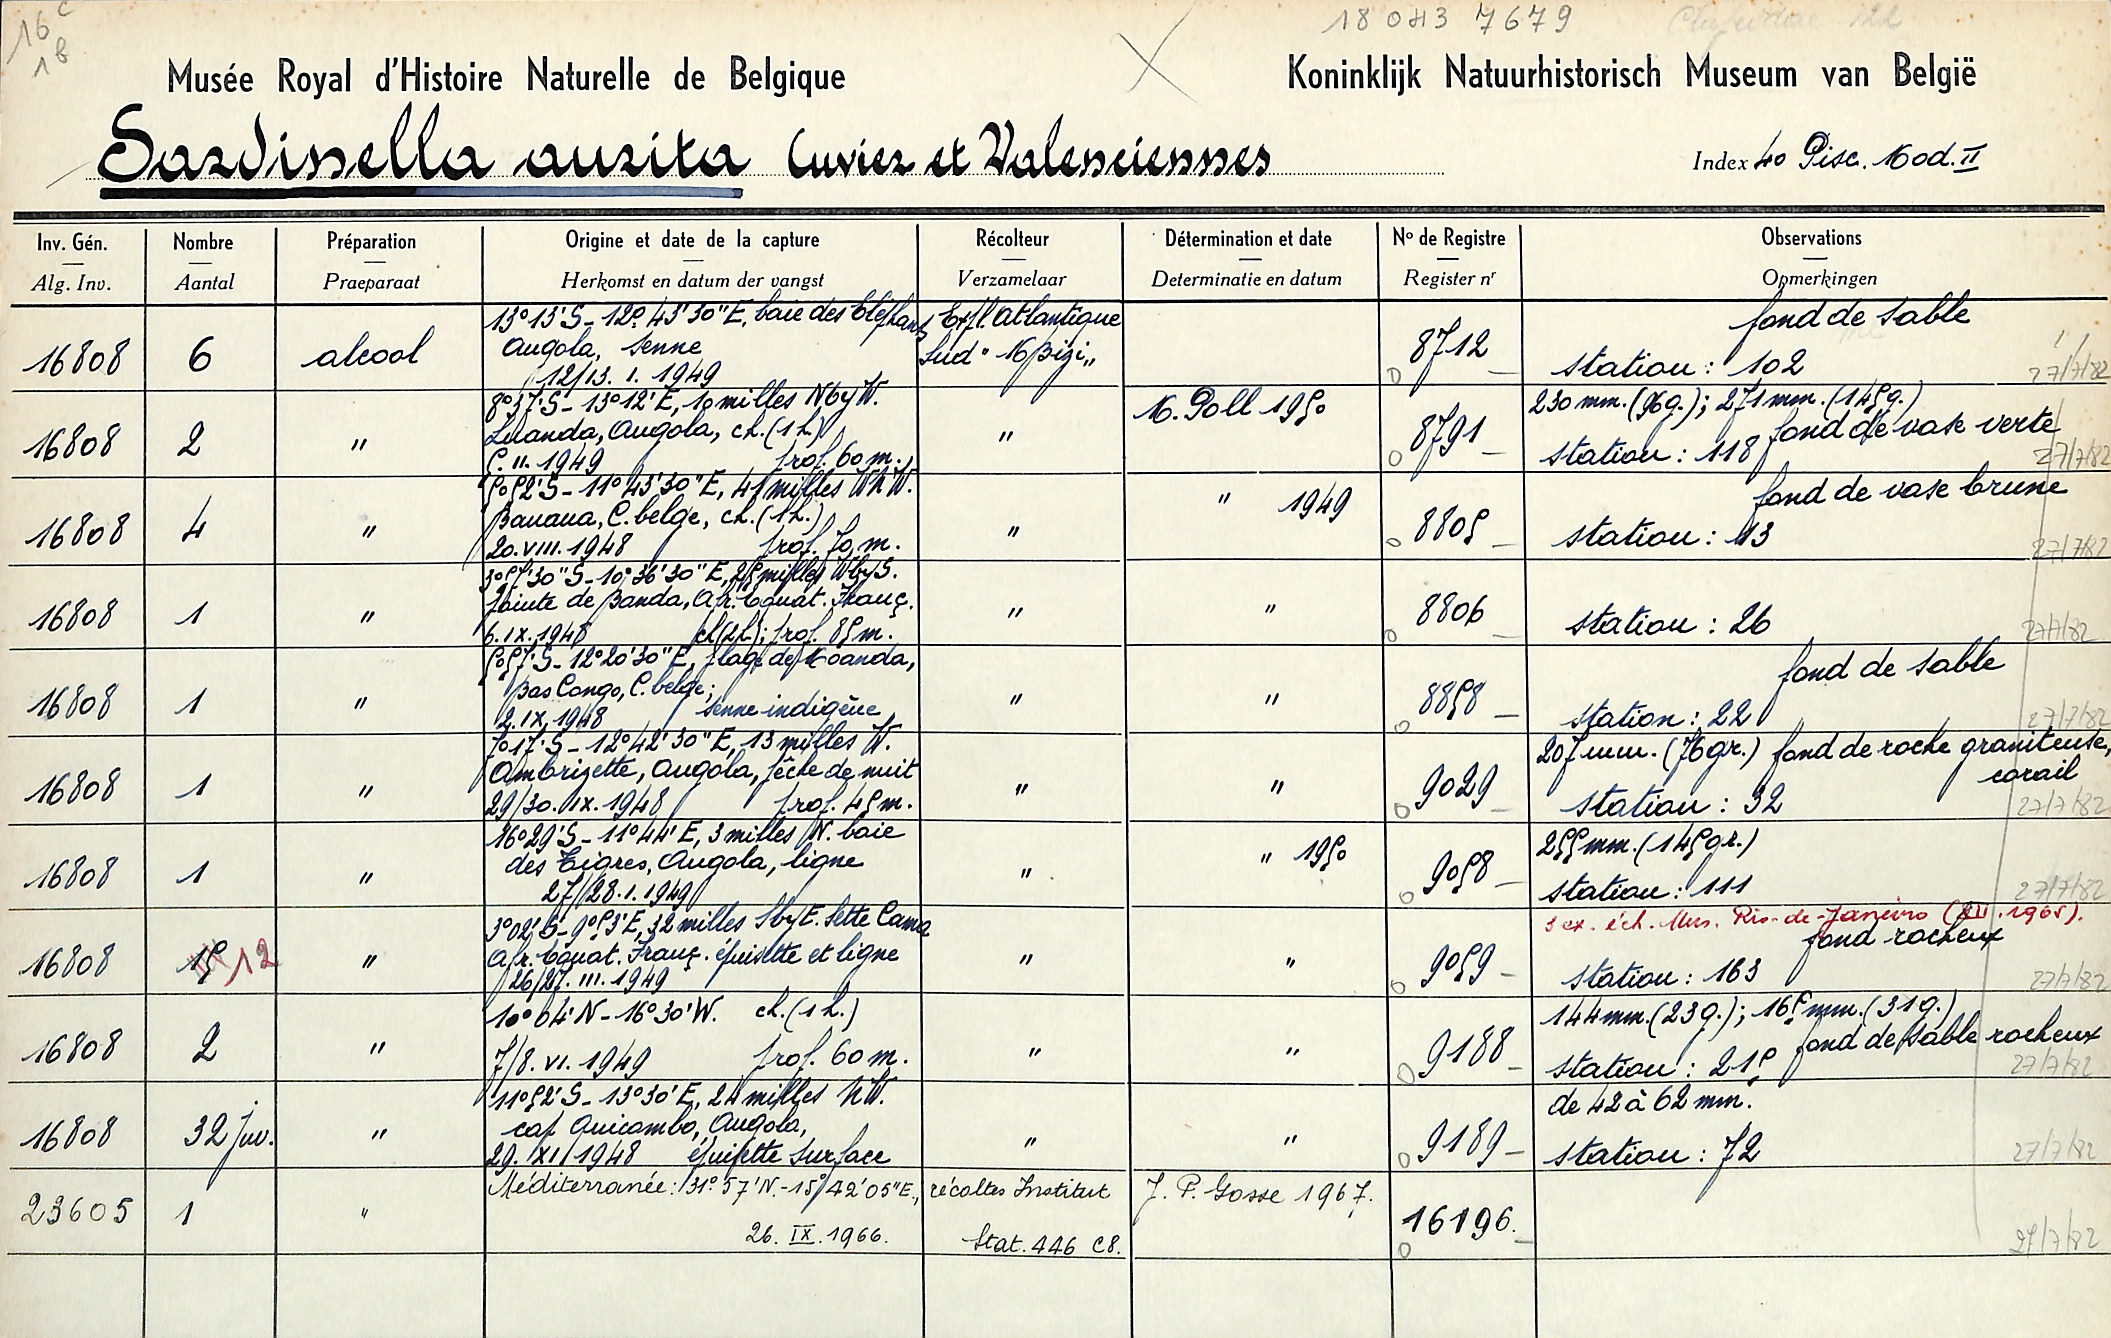 16 c
1 b
18 043 7679
Clupeidae 122
Musée Royal d'Histoire Naturelle de Belgique
Koninklijk Natuurhistorisch Museum van België
Sardinella aurita Cuvier et Valenciennes
Index 40 Pisc. Mod. II
Inv. Gén. Nombre Préparation Origine et date de la capture Récolteur Détermination et date No de Registre Observations
Alg. Inv. Aantal Praeparaat Herkomst en datum der vangst Verzamelaar Determinatie en datum Register nr Opmerkingen
13°13'S - 12° 43'30"E, baie des Eléphants Exp. Atlantique fond de sable
16808 6 alcool Angola, senne Sud "Mbizi" 8712 station : 102
12/13. I. 1949 27/7/82
8°37'S - 13°12'E, 10 milles N by W. M. Poll 1950 230 mm. (96g.); 271 mm. (145g.)
16808 2 " Luanda, Angola, ch. (1 h.) " 8791 fond de vase verte
5. II. 1949 prof. 60 m. station : 118 27/7/82
5°52'S - 11° 43'30"E, 41 milles WNW. " 1949 fond de vase brune
16808 4 " Banana, C. belge, ch. (1 h.) " 8805 station : 13
20. VIII. 1948 prof. 70 m. 27/7/82
3°57'30"S - 10°36'30"E, 25 milles W by S.
16808 1 " Pointe de Banda, Afr. Equat. Franç. " " 8806 station : 26
6. IX. 1948 ch (2 h.); prof. 85 m. 27/7/82
5°57'S - 12°20'30"E, plage de Moanda, fond de sable
16808 1 " Bas Congo, C. belge; " " 8858 station : 22
2. IX. 1948 senne indigène 27/7/82
7°17'S - 12°42'30"E, 13 milles W. 207 mm. (76 gr.) fond de roche graniteuse,
16808 1 " Ambrizette, Angola, pêche de nuit " " 9029 corail
29/30. IX. 1948 prof. 45 m. station : 32 27/7/82
16°29'S - 11°44'E, 3 milles N. baie 255 mm. (145 gr.)
16808 1 " des Tigres, Angola, ligne " " 1950 9058 station : 111
27/28. I. 1949 27/7/82
3°02'S - 9°53'E, 32 milles S by E. Sette Cama 3 ex. éch. Mus. Rio-de-Janeiro (XII. 1965).
16808 15 12 " Afr. Equat. Franç. épuisette et ligne " " 9059 fond rocheux
26/27. III. 1949 station : 163 27/7/82
10°64'N - 16°30'W. ch. (1 h.) 144 mm. (23 g.); 165 mm. (31 g.)
16808 2 " " " 9188 fond de sable rocheux
7/8. VI. 1949 prof. 60 m. station : 215 27/7/82
11°52'S - 13°30'E, 24 milles NW. de 42 à 62 mm.
16808 32 juv. " cap Quicombo, Angola, " " 9189
29. XII 1948 épuisette surface station : 72 27/7/82
Méditerranée : 31° 57'N. - 15° 42'05"E., récoltes Institut J. P. Gosse 1967.
23605 1 " 16196.
26. IX. 1966. Stat. 446 C8. 27/7/82